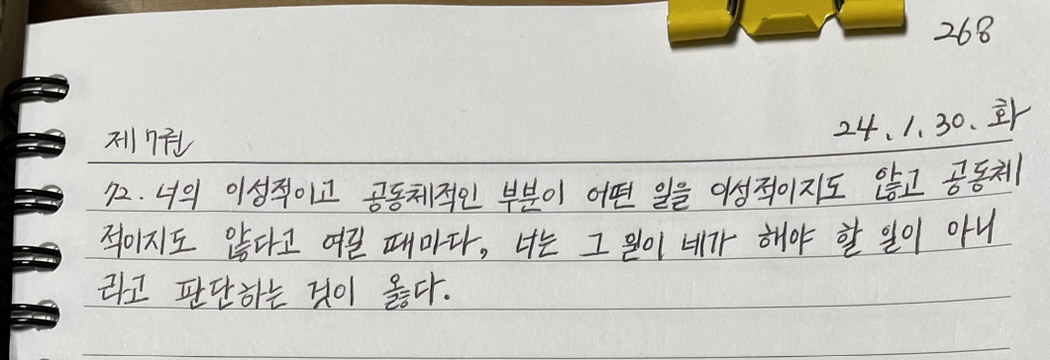 268
제7권
24.1.30.화
72. 너의 이성적이고 공동체적인 부분이 어떤 일을 이성적이지도 않고 공동체
적이지도 않다고 여길 때마다, 너는 그 일이 네가 해야 할 일이 아니
라고 판단하는 것이 옳다.